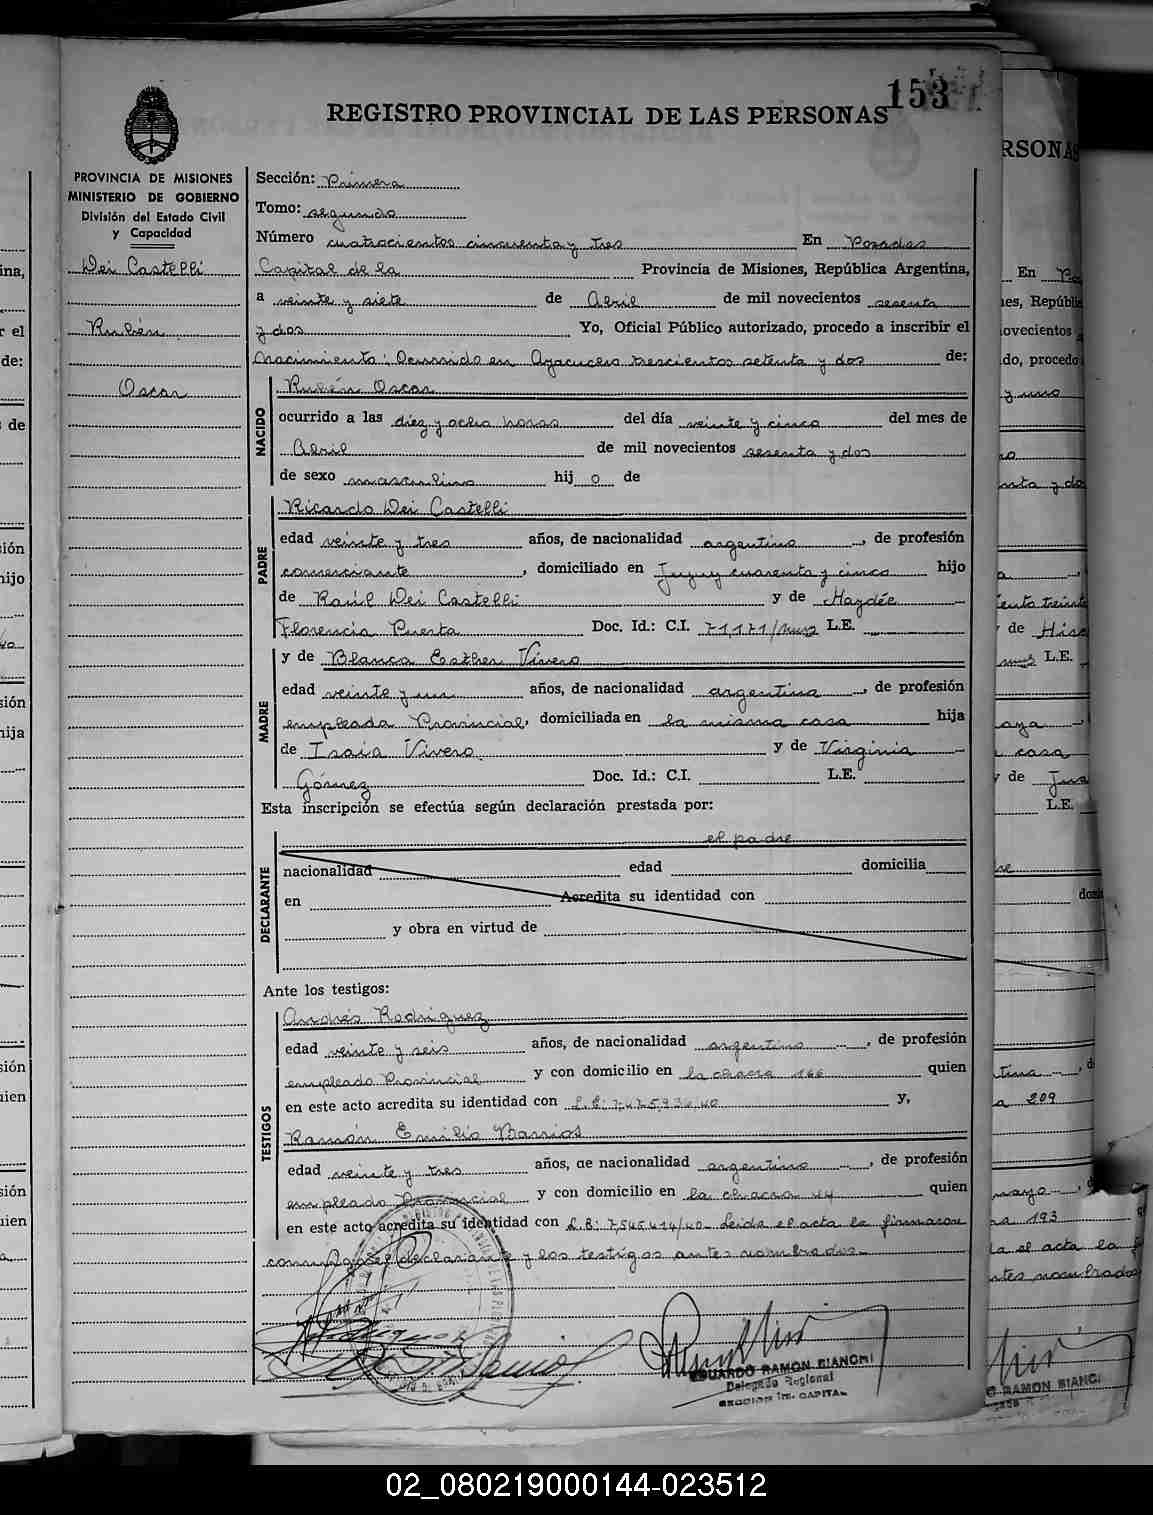 153
REGISTRO PROVINCIAL DE LAS PERSONAS
PROVINCIA DE MISIONES
MINISTERIO DE GOBIERNO
División del Estado Civil
y Capacidad
Dei Castelli
Rubén
Oscar
Sección: Primera
Tomo: segundo
Número cuatrocientos cincuenta y tres En Posadas
Capital de la Provincia de Misiones, República Argentina,
a veinte y siete de Abril de mil novecientos sesenta
y dos Yo, Oficial Público autorizado, procedo a inscribir el
nacimiento: Ocurrido en Ayacucho trescientos setenta y dos de:
NACIDO
Rubén Oscar
ocurrido a las diez y ocho horas del día veinte y cinco del mes de
Abril de mil novecientos sesenta y dos
de sexo masculino hij o de
PADRE
Ricardo Dei Castelli
edad veinte y tres años, de nacionalidad argentino, de profesión
comerciante, domiciliado en Jujuy cuarenta y cinco hijo
de Raúl Dei Castelli y de Haydée
Florencia Puerta Doc. Id.: C.I. 71,171/mnes L.E.
MADRE
y de Blanca Esther Vivero
edad veinte y un años, de nacionalidad argentina, de profesión
empleada Provincial, domiciliada en la misma casa hija
de Isaía Vivero y de Virginia
Gómez Doc. Id.: C.I. L.E.
Esta inscripción se efectúa según declaración prestada por:
DECLARANTE
el padre
nacionalidad edad domicilia
en Acredita su identidad con
y obra en virtud de
Ante los testigos:
TESTIGOS
Andrés Rodriguez
edad veinte y seis años, de nacionalidad argentino, de profesión
empleado Provincial y con domicilio en la chacra 166 quien
en este acto acredita su identidad con L.E: 7.475.936/40 y,
Ramón Emilio Barrios
edad veinte y tres años, de nacionalidad argentino, de profesión
empleado Provincial y con domicilio en la chacra 44 quien
en este acto acredita su identidad con L.E: 7.545.414/40 Leida el acta la firmaron
conmigo el declarante y los testigos antes nombrados.
EDUARDO RAMON BIANCHI
Delegado Regional
SECCION 1ra. CAPITAL
02_080219000144-023512